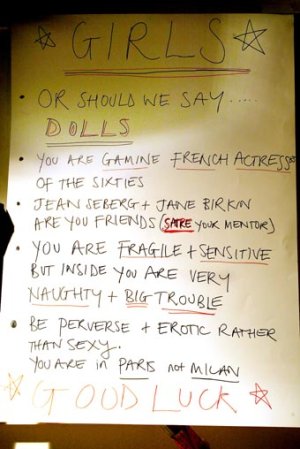 ☆ GIRLS ☆
• OR SHOULD WE SAY .....
DOLLS
• YOU ARE GAMINE FRENCH ACTRESSES
OF THE SIXTIES
• JEAN SEBERG + JANE BIRKIN
ARE YOU FRIENDS (SATRE YOUR MENTOR)
• YOU ARE FRAGILE + SENSITIVE
BUT INSIDE YOU ARE VERY
NAUGHTY + BIG TROUBLE
• BE PERVERSE + EROTIC RATHER
THAN SEXY.
YOU ARE in PARIS not MILAN
☆ GOOD LUCK ☆